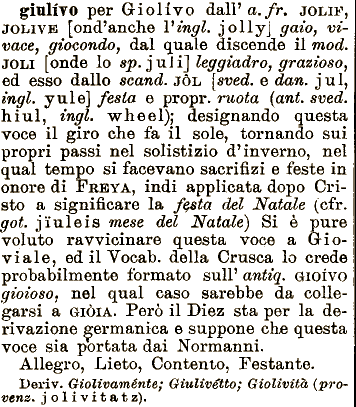 giulívo per Giolívo dall' a. fr. JOLIF,
JOLIVE [ond'anche l'ingl. jolly] gaio, vi-
vace, giocondo, dal quale discende il mod.
JOLI [onde lo sp. juli] leggiadro, grazioso,
ed esso dallo scand. JÒL [sved. e dan. jul,
ingl. yule] festa e propr. ruota (ant. sved.
hiul, ingl. wheel); designando questa
voce il giro che fa il sole, tornando sui
propri passi nel solistizio d'inverno, nel
qual tempo si facevano sacrifizi e feste in
onore di FREYA, indi applicata dopo Cri-
sto a significare la festa del Natale (cfr.
got. jïuleis mese del Natale) Si è pure
voluto ravvicinare questa voce a Gio-
viale, ed il Vocab. della Crusca lo crede
probabilmente formato sull' antiq. GIOÍVO
gioioso, nel qual caso sarebbe da colle-
garsi a GIÒIA. Però il Diez sta per la de-
rivazione germanica e suppone che questa
voce sia portata dai Normanni.
Allegro, Lieto, Contento, Festante.
Deriv. Giolivaménte; Giulivétto; Giolività (pro-
venz. jolivitatz).